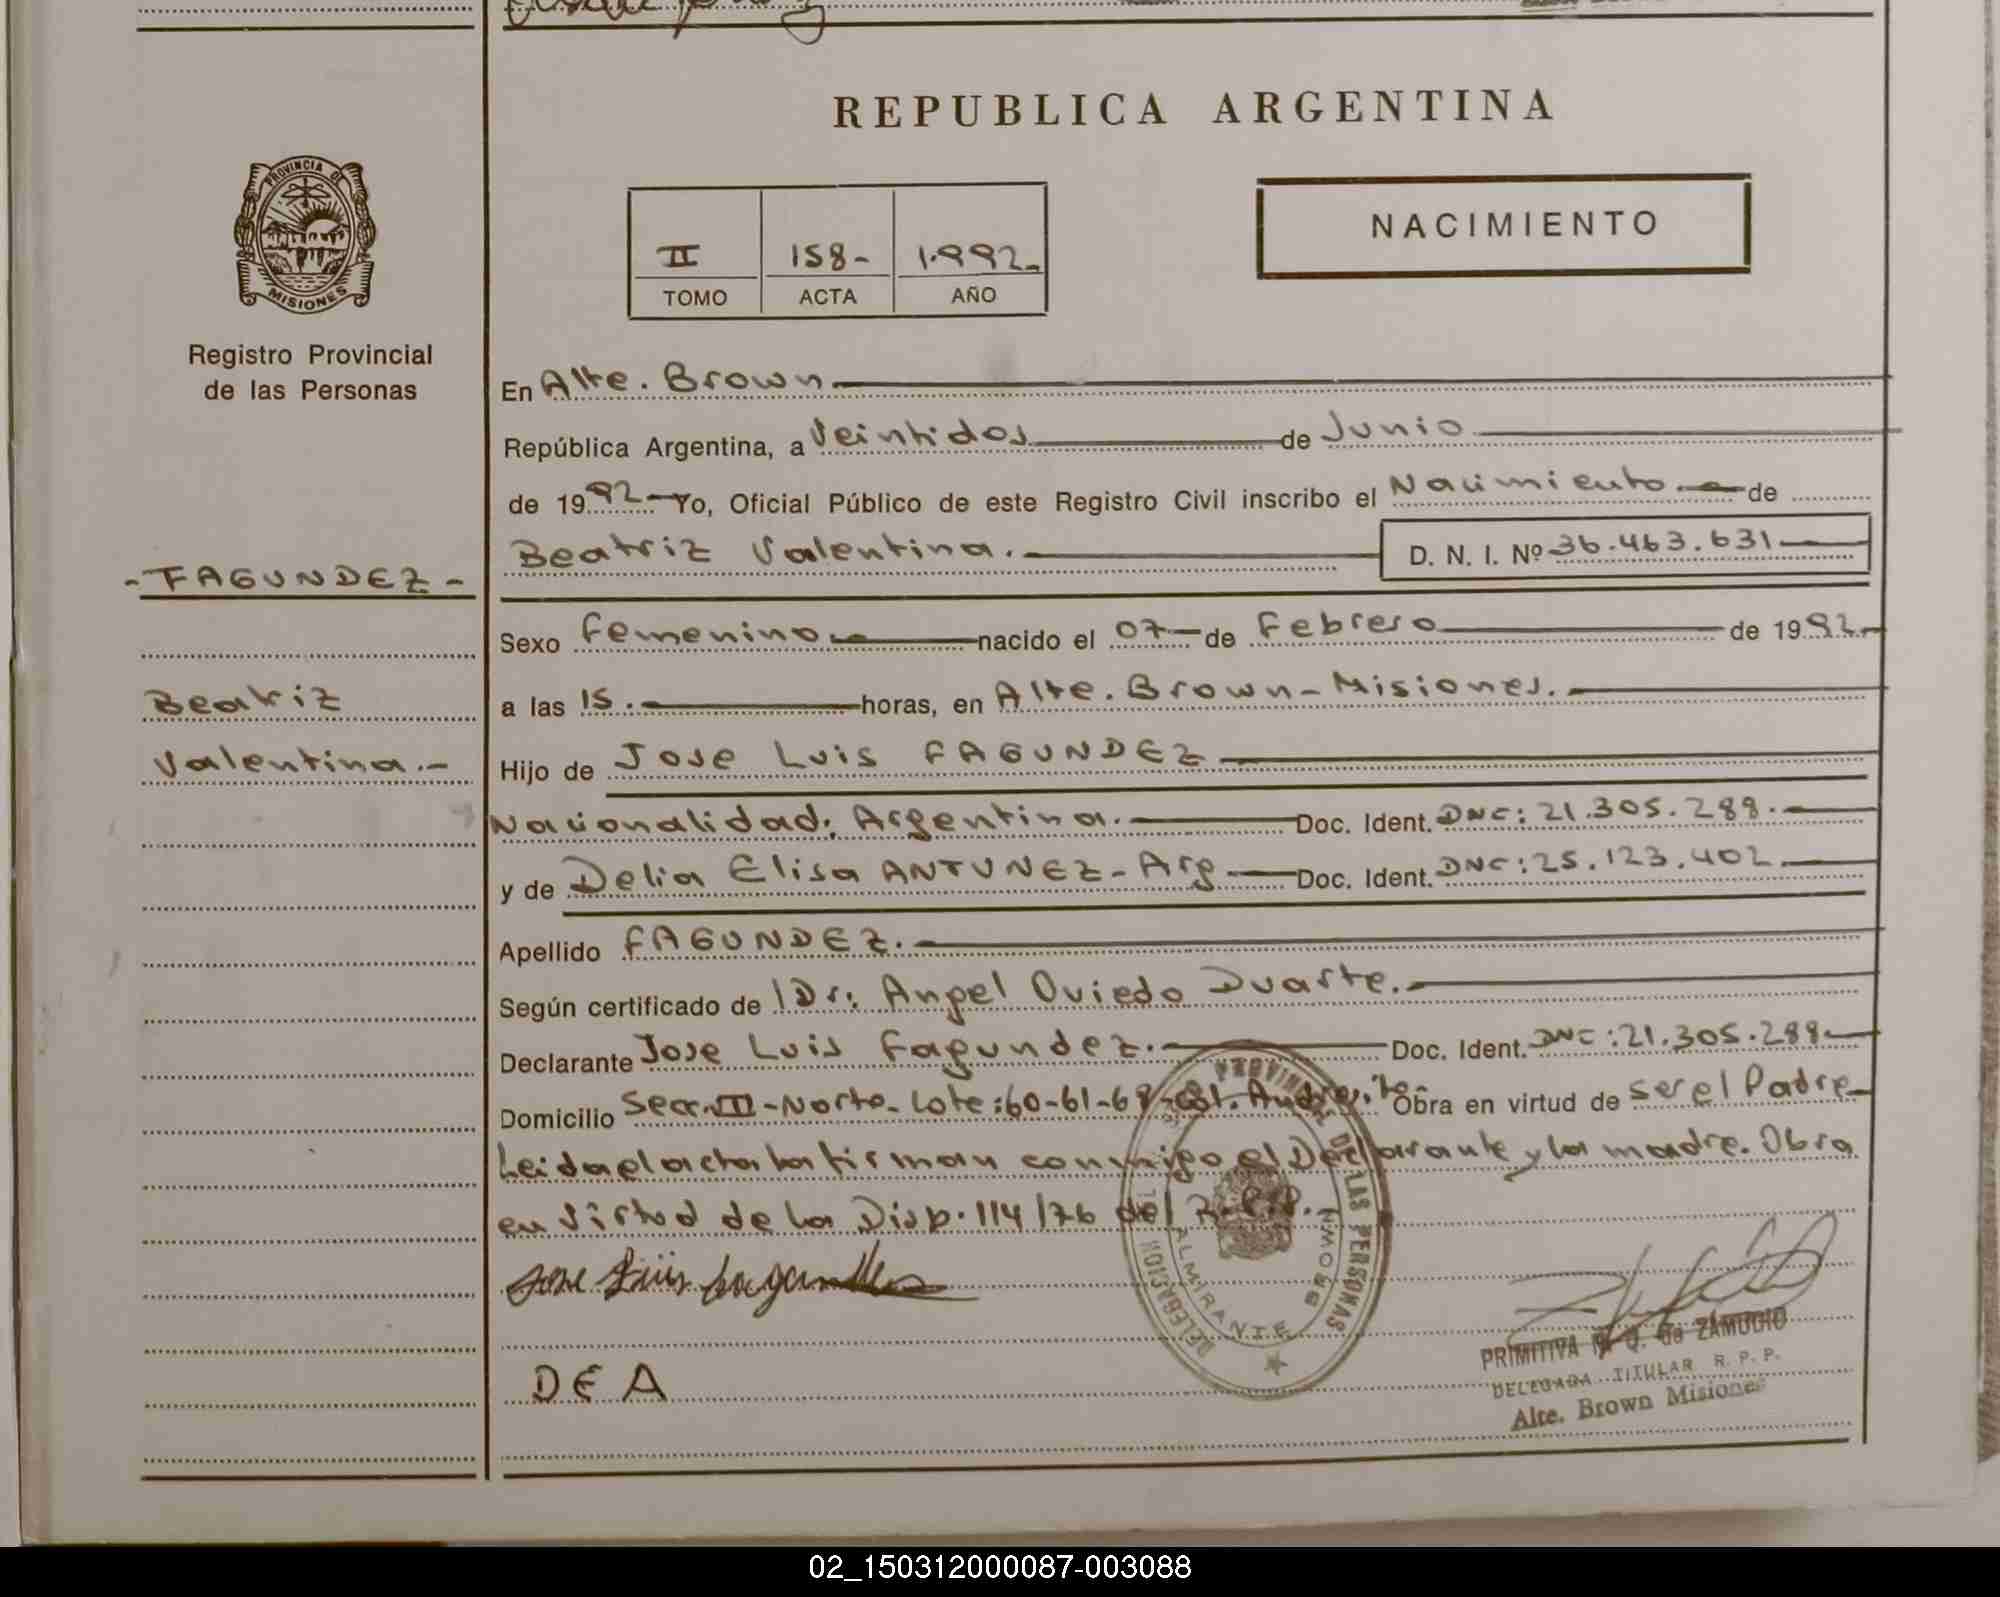 REPUBLICA ARGENTINA
PROVINCIA DE
MISIONES
Registro Provincial
de las Personas
II 158- 1.992-
TOMO ACTA AÑO
NACIMIENTO
En Alte. Brown
República Argentina, a Veintidos de Junio
de 1992 Yo, Oficial Público de este Registro Civil inscribo el Nacimiento de
Beatriz Valentina. D. N. I. Nº 36.463.631
- FAGUNDEZ -
Beatriz
Valentina.-
Sexo Femenino nacido el 07 de Febrero de 1992.
a las 15. horas, en Alte. Brown - Misiones.
Hijo de Jose Luis FAGUNDEZ
Nacionalidad: Argentina. Doc. Ident. DNI: 21.305.288.
y de Delia Elisa ANTUNEZ - Arg Doc. Ident. DNI: 25.123.402
Apellido FAGUNDEZ.
Según certificado de Dr: Angel Oviedo Duarte.
Declarante Jose Luis Fagundez. Doc. Ident. DNI: 21.305.288
Domicilio Secc. III - Norte - Lote: 60-61-68- Col. Andresito Obra en virtud de ser el Padre
Leida el acta la firman conmigo el Declarante y la madre. Obra
en virtud de la Disp. 114/76 del R.P.P.
Jose Luis Fagundez
DEA
DELEGACION PROVINCIAL DE LAS PERSONAS
ALMIRANTE BROWN
PRIMITIVA de ZAMUDIO
DELEGADA TITULAR R. P. P.
Alte. Brown Misiones
02_150312000087-003088